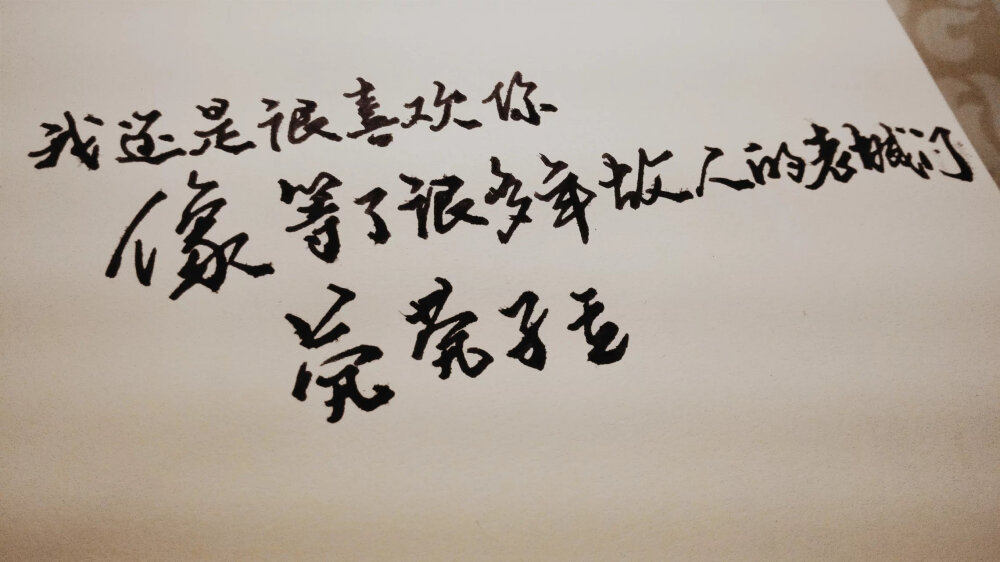 我还是很喜欢你
像等了很多年故人的老城门
茕茕孑立